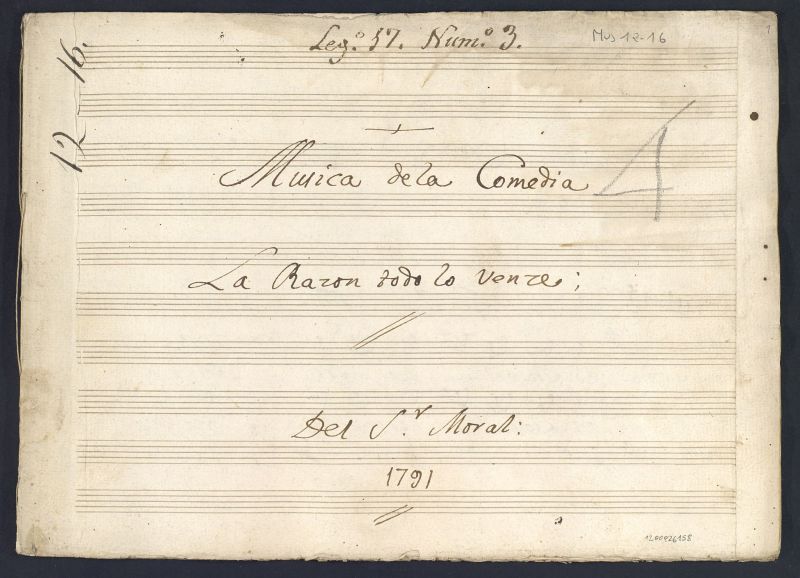 Leg.º 17. Num.º 3.
Mus 12-16
1
12 16.
4
Musica dela Comedia
La Razon todo lo venze;
Del S.r Moral:
1791
1200026158